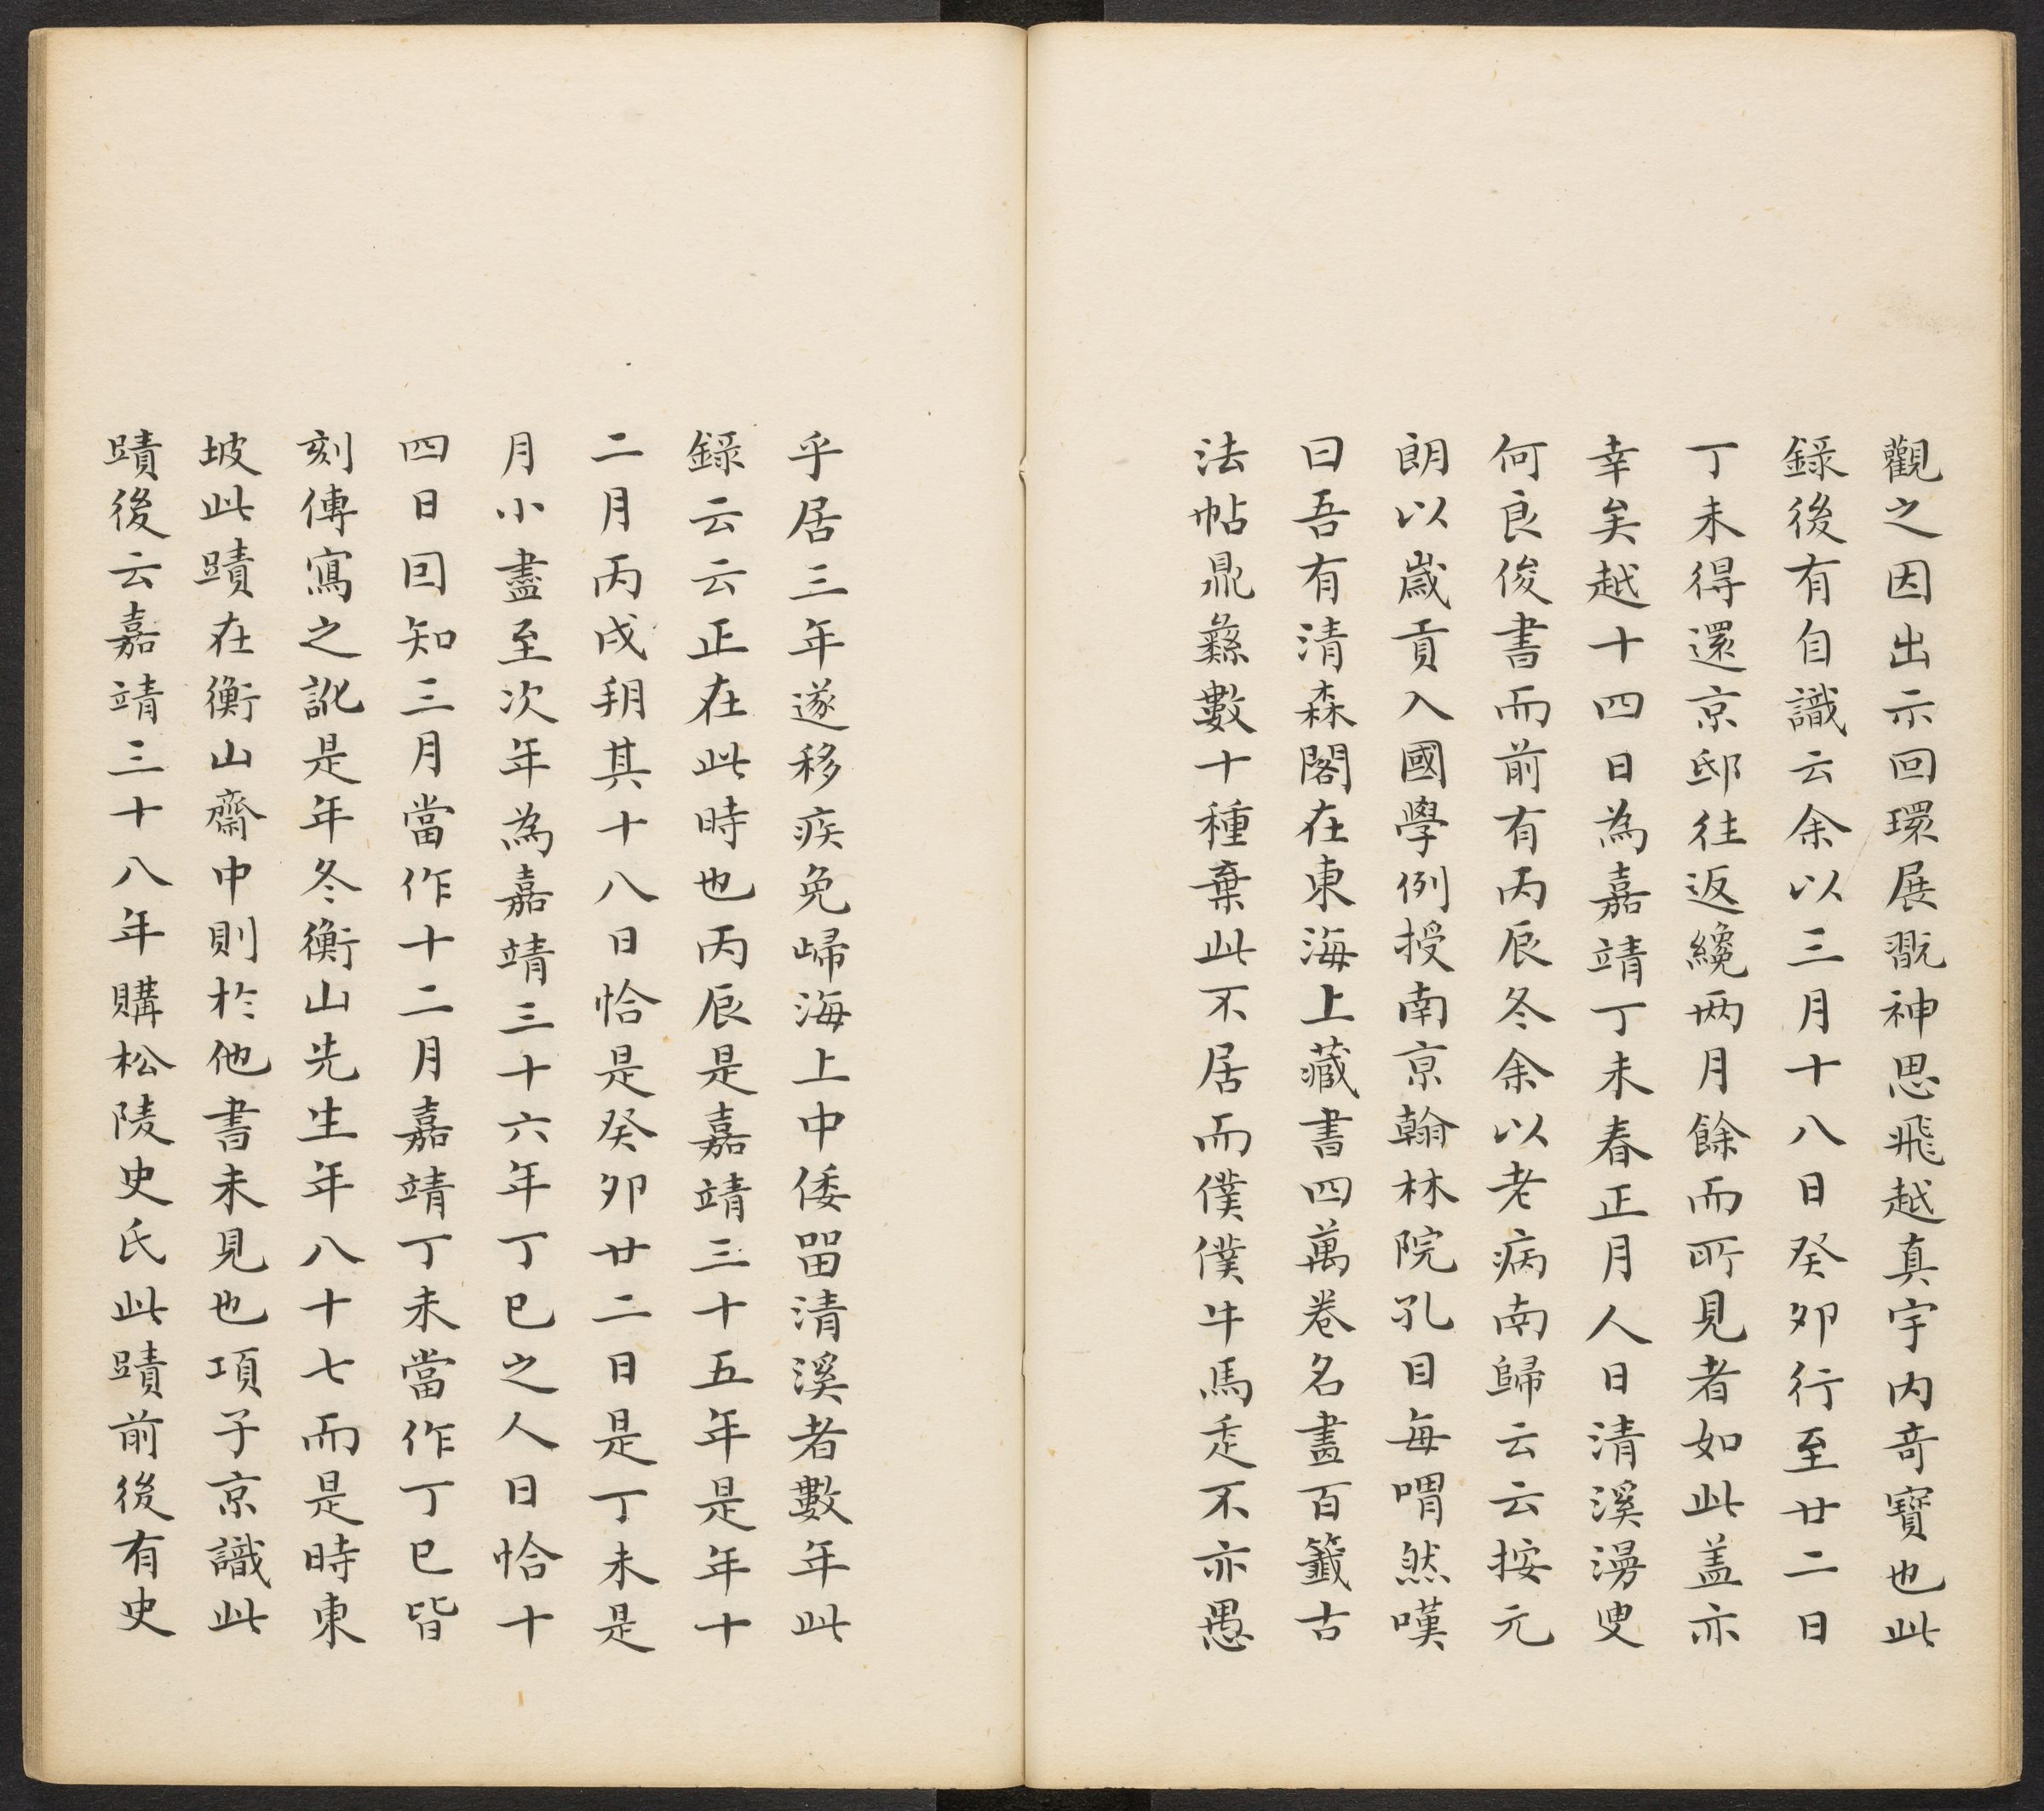 觀之因出示回環展翫神思飛越真宇內竒寶也此
錄後有自識云余以三月十八日癸夘行至廿二日
丁未得還京邸徃返纔兩月餘而所見者如此盖亦
幸矣越十四日為嘉靖丁未春正月人日清溪漫叟
何良俊書而前有丙辰冬余以老病南歸云云按元
朗以歲貢入國學例授南京翰林院孔目每喟然嘆
曰吾有清森閣在東海上藏書四萬卷名畫百籤古
法帖鼎彝數十種棄此不居而僕僕牛馬走不亦愚
乎居三年遂移疾免歸海上中倭留清溪者數年此
錄云云正在此時也丙辰是嘉靖三十五年是年十
二月丙戌朔其十八日恰是癸夘廿二日是丁未是
月小盡至次年為嘉靖三十六年丁巳之人日恰十
四日囙知三月當作十二月嘉靖丁未當作丁巳皆
刻傳寫之訛是年冬衡山先生年八十七而是時東
坡此蹟在衡山齋中則於他書未見也項子京識此
蹟後云嘉靖三十八年購松陵史氏此蹟前後有史